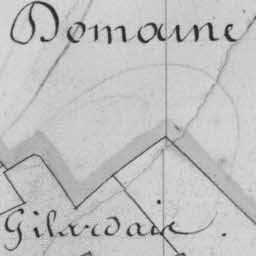 Domaine
Gilardaie.